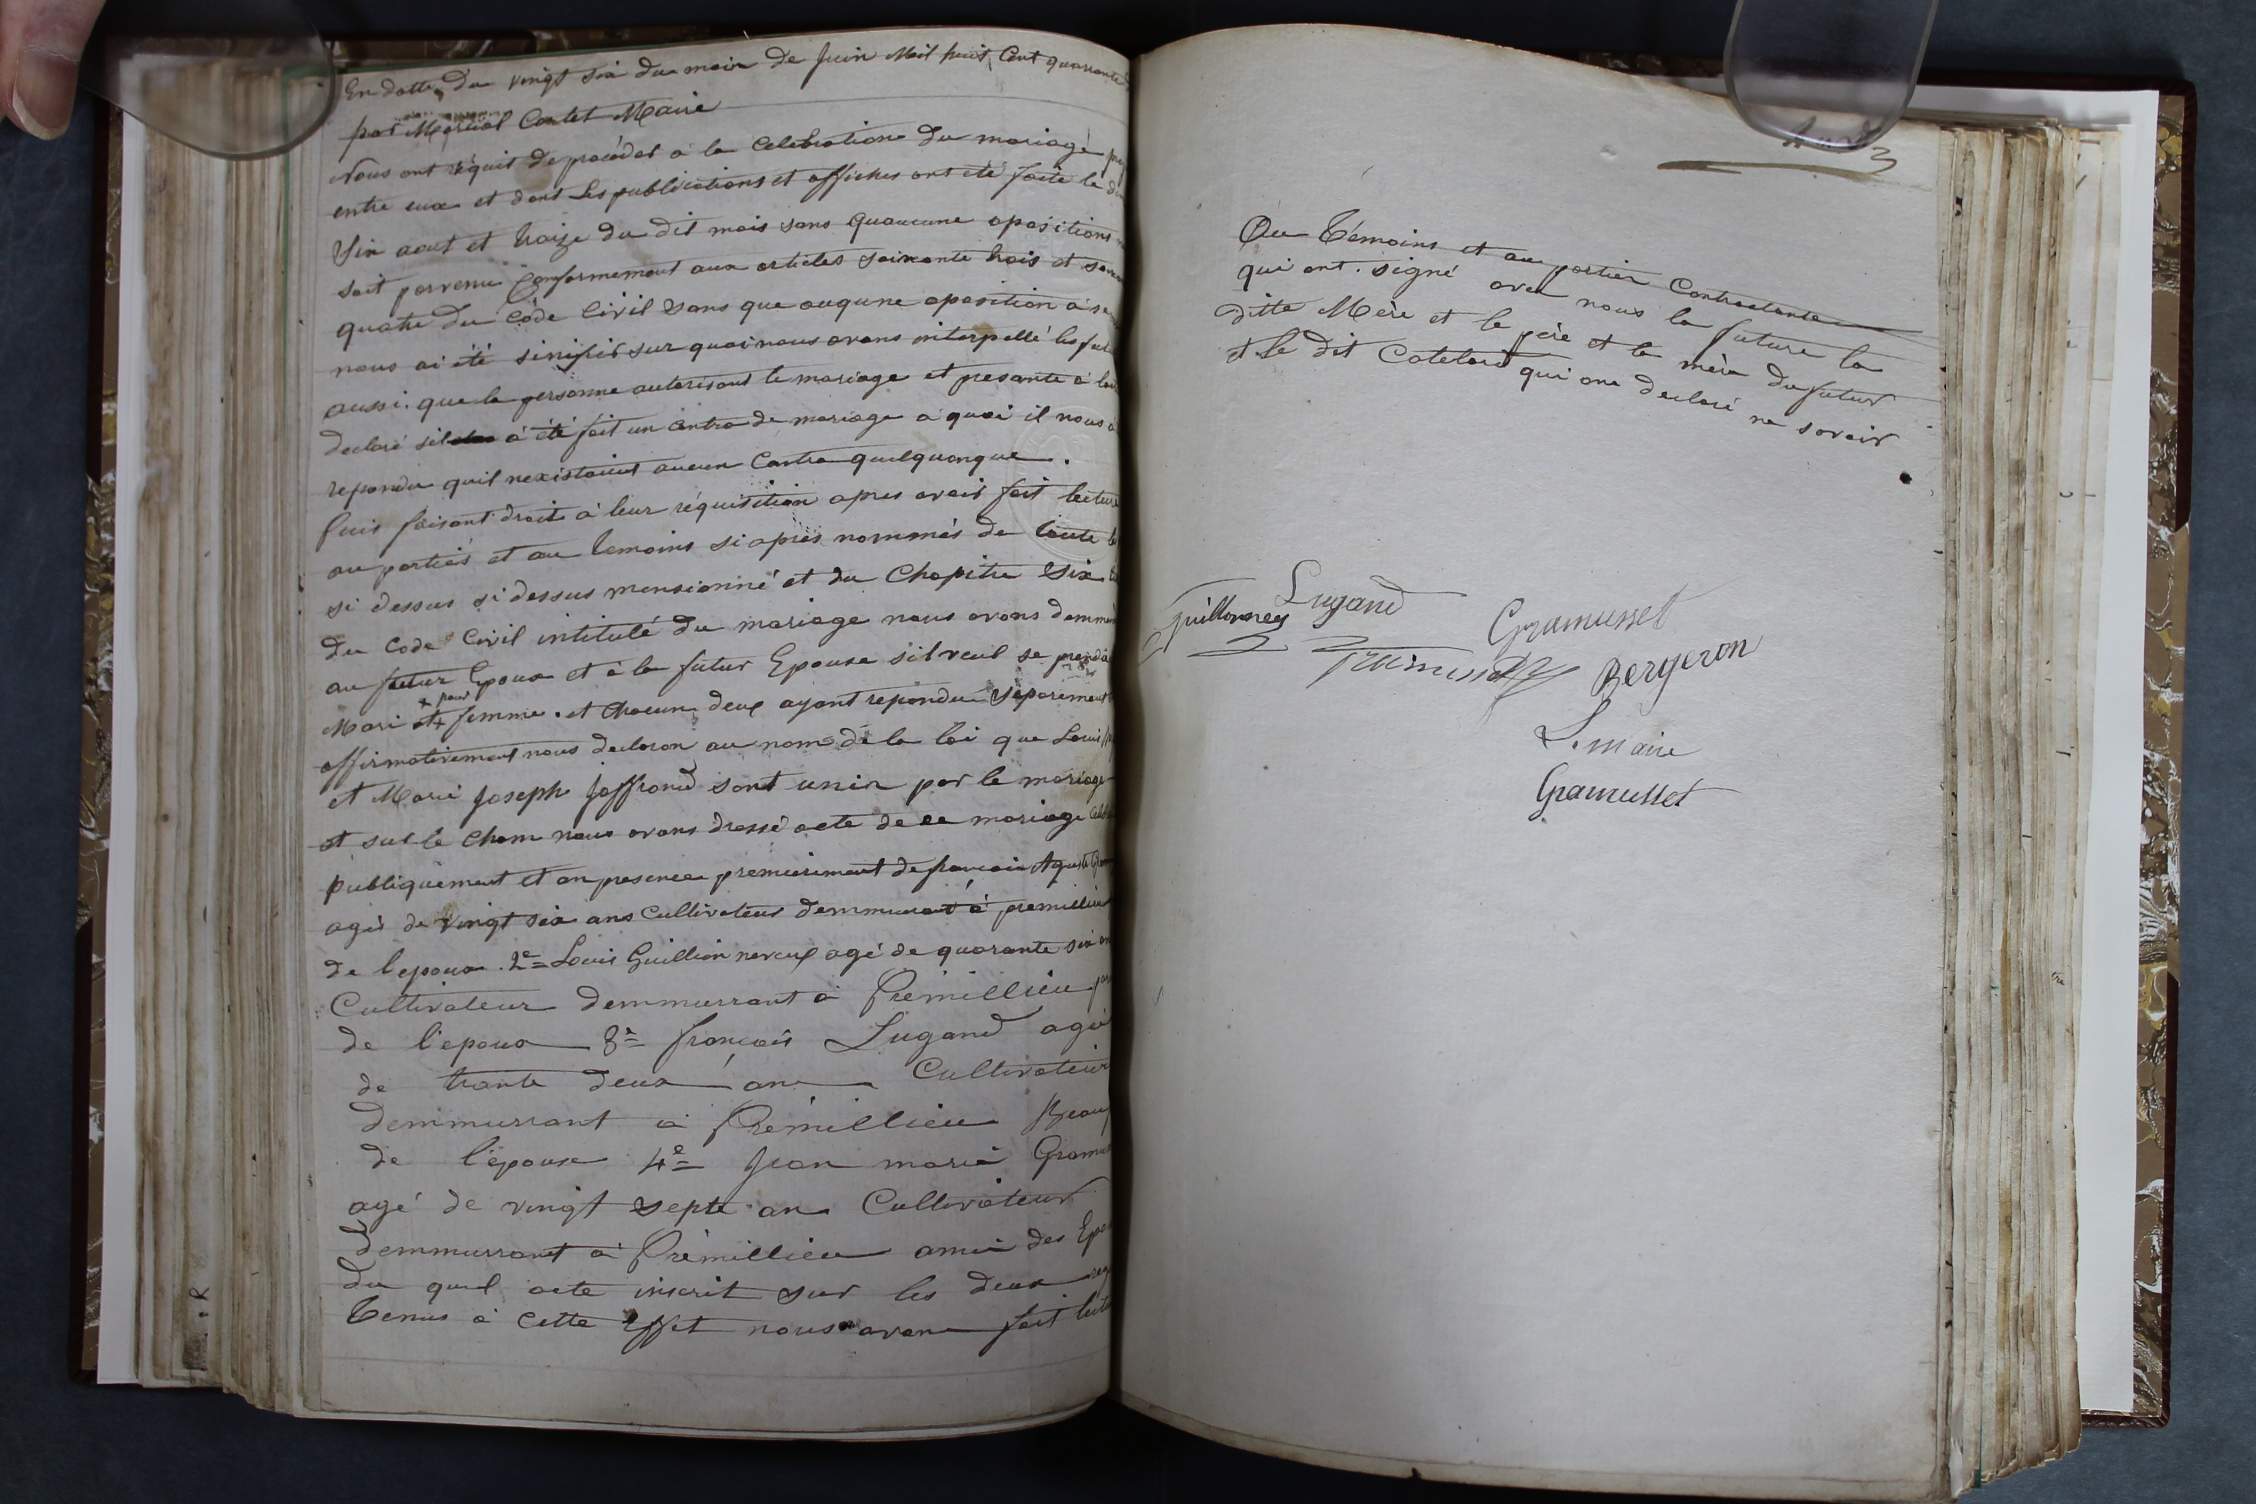 En datte Du vingt six du mois De Juin Mil huit Cent quarante
par Martial Cartet Maire
Nous ont réquit de procédér à la Celebration du mariage
entre eux et dont Les publications et affiches ont été faite le
Six aout et traize du dit mois sans quaucune opositions
soit parvenu Conformement aux articles soixante trois et
quatre du Code Civil sans que augune oposition a
nous ai été sinifier sur quoi nous avons interpellé les
aussi que la personne autorisant le mariage et presante à
declaré sil à été fait un Contra de mariage a quoi il nous
repondu quil nexistaient aucun Contra quelquonque.
Puis faisant droit à leur réquisition apres avoir fait lecture
au partiés et au temoins si après nommés de toute
si dessus si dessus mensionné et du Chapitre Six
du Code Civil intitulé du mariage nous avons demmendé
au futur Epoux et à la futur Epouse sil veul se prendre
pour
Mari et femme. et chacun deux ayant repondu séparement
affirmativement nous declaron au nom de la loi que Louis
et Marie Joseph Joffrand sont unir par le mariage
et sur le Cham nous avons dressé acte de ce mariage
publiquement et an presence premierement de francois Aguste
agés de vingt six ans Cultivateur demmurant à premillieu
de lepoux. 2e Louis Guillion neveux agé de quarante six
Cultivateur demmurrant à Prémillieu
de l'epoux 3e françois Lugand agé
de trante deux an Cultivateur
demmurrant à Prémillieu Beau
de l'épouse 4e Jean marie
agé de vingt septe an Cultivateur
demmurrant à Prémillieu amie des
du quel acte inscrit sur les deux
tenus à cette effet nous avons fait
Au Témoins et au partier Contractante
qui ont signé avec nous la future la
ditte Mère et le père et la mère du futur
et le dit qui ons declaré ne savoir
Lugand
Guillonney
Gramusset
Bergeron
L. maire
Gramusset